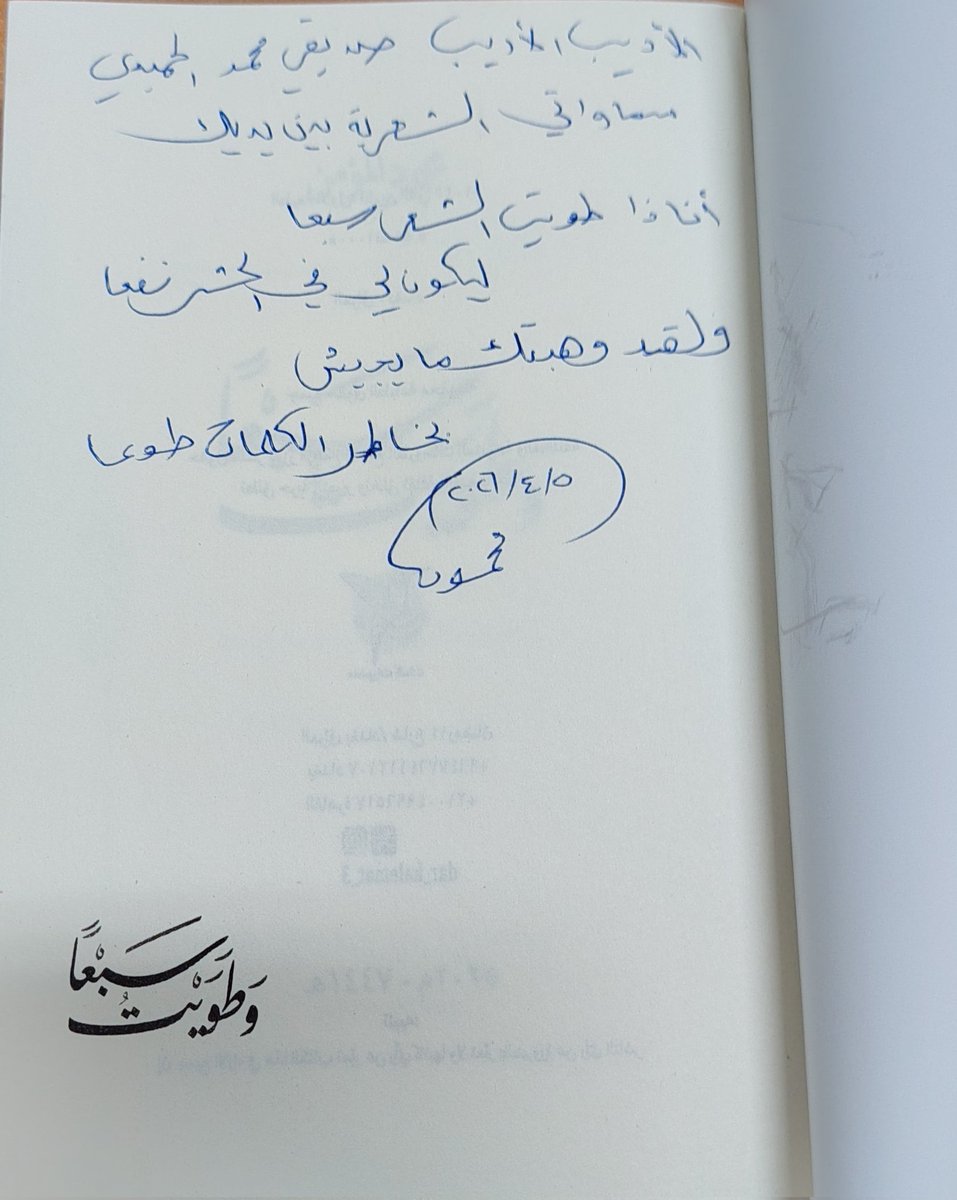 الأديب الأديب صديقي محمد الحميدي
سماواتي الشعرية بين يديك
أنا ذا طويت الشعر سبعا
ليكون لي في الحشر نفعا
ولقد وهبتك ما يجيش
بخاطر الكلمات طوعا
٢٠٢٦/٤/٥
محمود
وَطَوَيْتُ سَبْعًا
dar_kalemat_3